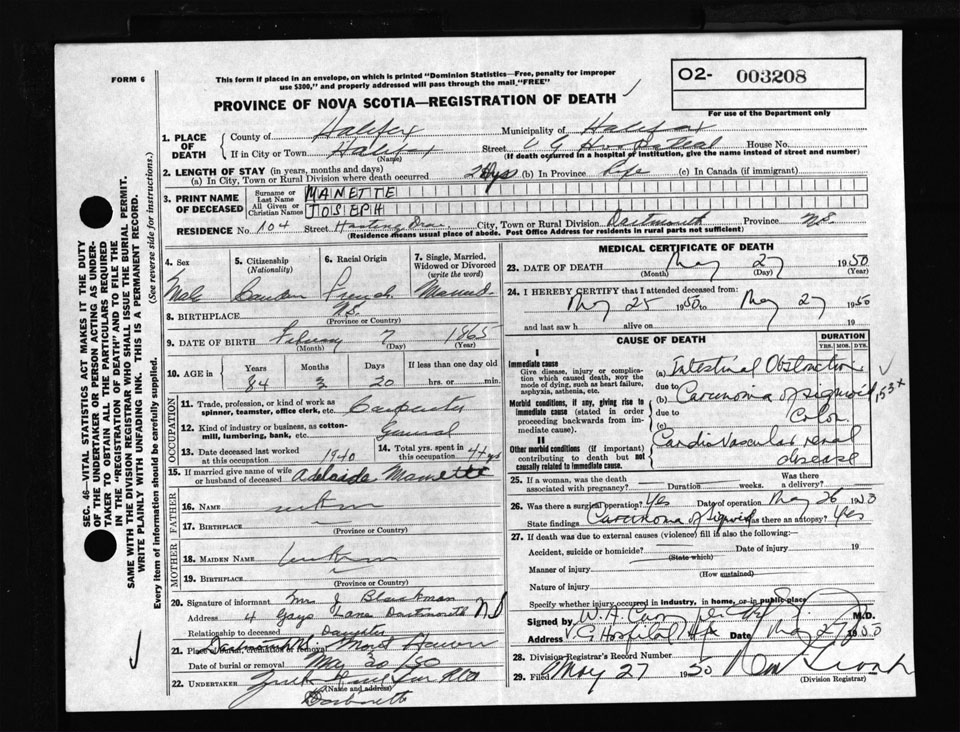 FORM 6
This form if placed in an envelope, on which is printed "Dominion Statistics—Free, penalty for improper
use $300," and properly addressed will pass through the mail "FREE"
O2- 003208
For use of the Department only
PROVINCE OF NOVA SCOTIA—REGISTRATION OF DEATH
1. PLACE OF DEATH
County of Halifax Municipality of Halifax
If in City or Town Halifax Street V G Hospital House No.
(Name) (If death occurred in a hospital or institution, give the name instead of street and number)
2. LENGTH OF STAY (in years, months and days)
(a) In City, Town or Rural Division where death occurred 2 Days (b) In Province Life (c) In Canada (if immigrant)
3. PRINT NAME OF DECEASED
Surname or Last Name MANETTE
All Given or Christian Names JOSEPH
RESIDENCE No. 104 Street City, Town or Rural Division Dartmouth Province N.S.
(Residence means usual place of abode. Post Office Address for residents in rural parts not sufficient)
4. Sex Male
5. Citizenship (Nationality)
6. Racial Origin French
7. Single, Married, Widowed or Divorced (write the word) Married
8. BIRTHPLACE N.S.
(Province or Country)
9. DATE OF BIRTH February 7 1865
(Month) (Day) (Year)
10. AGE in Years Months Days If less than one day old
84 3 20 hrs. or min.
OCCUPATION
11. Trade, profession, or kind of work as spinner, teamster, office clerk, etc. Carpenter
12. Kind of industry or business, as cotton-mill, lumbering, bank, etc. General
13. Date deceased last worked at this occupation 1940
14. Total yrs. spent in this occupation
15. If married give name of wife or husband of deceased Adelaide Mannette
FATHER
16. Name unkn
17. Birthplace
(Province or Country)
MOTHER
18. MAIDEN NAME unkn
19. BIRTHPLACE
(Province or Country)
20. Signature of informant Mrs J Blackman
Address 4 Gays Lane Dartmouth N S
Relationship to deceased Daughter
21. Place of burial, cremation or removal Mont
Date of burial or removal May 30/50
22. UNDERTAKER
(Name and address)
MEDICAL CERTIFICATE OF DEATH
23. DATE OF DEATH May 27 1950
(Month) (Day) (Year)
24. I HEREBY CERTIFY that I attended deceased from:
May 25 1950 to May 27 1950
and last saw h alive on 19
CAUSE OF DEATH
DURATION
YRS. MOS. DYS.
I
Immediate cause
Give disease, injury or complication which caused death, not the mode of dying, such as heart failure, asphyxia, asthenia, etc.
(a) Intestinal Obstruction
due to
Morbid conditions, if any, giving rise to immediate cause (stated in order proceeding backwards from immediate cause).
(b) Carcinoma of sigmoid
Colon
due to
(c)
II
Other morbid conditions (if important) contributing to death but not causally related to immediate cause.
Cardio Vascular renal
disease
25. If a woman, was the death associated with pregnancy? Duration weeks. Was there a delivery?
26. Was there a surgical operation? Yes Date of operation May 26
State findings Carcinoma of Sigmoid Was there an autopsy? Yes
27. If death was due to external causes (violence) fill in also the following:—
Accident, suicide or homicide? Date of injury 19
(State which)
Manner of injury
(How sustained)
Nature of injury
Specify whether injury occurred in industry, in home, or in public place
Signed by M.D.
Address V. G Hospital Hfx Date May 27 1950
28. Division Registrar's Record Number
29. Filed May 27 1950
(Division Registrar)
SEC. 46—VITAL STATISTICS ACT MAKES IT THE DUTY
OF THE UNDERTAKER OR PERSON ACTING AS UNDER-
TAKER TO OBTAIN ALL THE PARTICULARS REQUIRED
IN THE "REGISTRATION OF DEATH" AND TO FILE THE
SAME WITH THE DIVISION REGISTRAR WHO SHALL ISSUE THE BURIAL PERMIT.
WRITE PLAINLY WITH UNFADING INK. THIS IS A PERMANENT RECORD.
Every item of information should be carefully supplied. (See reverse side for instructions.)